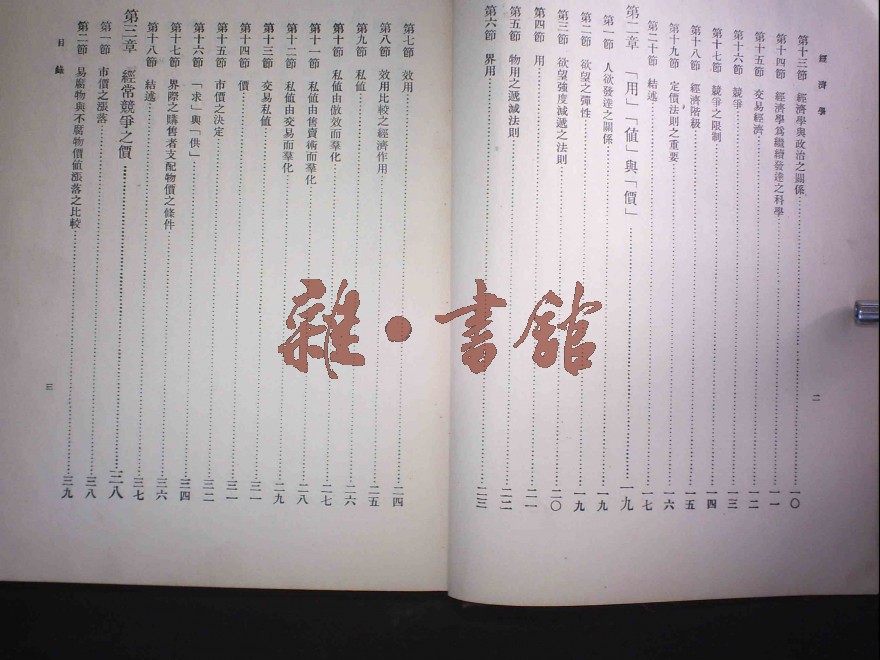 經濟學
第十三節 經濟學與政治之關係 一〇
第十四節 經濟學爲繼續發達之科學 一一
第十五節 交易經濟 一二
第十六節 競爭 一三
第十七節 競爭之限制 一四
第十八節 經濟階級 一五
第十九節 定價法則之重要 一六
第二十節 結述 一七
第二章 「用」「値」與「價」 一九
第一節 人欲發達之關係 一九
第二節 欲望之彈性 一九
第三節 欲望強度減遞之法則 二〇
第四節 用 二一
第五節 物用之遞減法則 二二
第六節 界用 二三
二
第七節 效用 二四
第八節 效用比較之經濟作用 二五
第九節 私値 二六
第十節 私値由倣效而羣化 二七
第十一節 私値由售賣術而羣化 二八
第十二節 私値由交易而羣化 二九
第十三節 交易私値 三一
第十四節 價 三一
第十五節 市價之決定 三二
第十六節 「求」與「供」 三四
第十七節 界際之購售者支配物價之條件 三六
第十八節 結述 三七
第三章 經常競爭之價 三八
第一節 市價之漲落 三八
第二節 易腐物與不腐物價値漲落之比較 三九
目錄
三
雜·書館